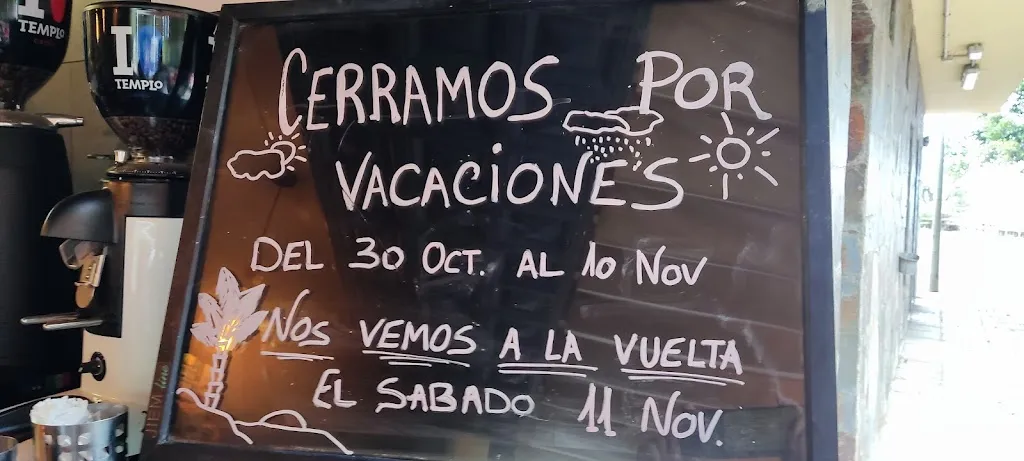 I TEMPLO
I TEMPLO
CERRAMOS POR
VACACIONES
DEL 30 OCT. AL 10 NOV
NOS VEMOS A LA VUELTA
EL SABADO 11 NOV.